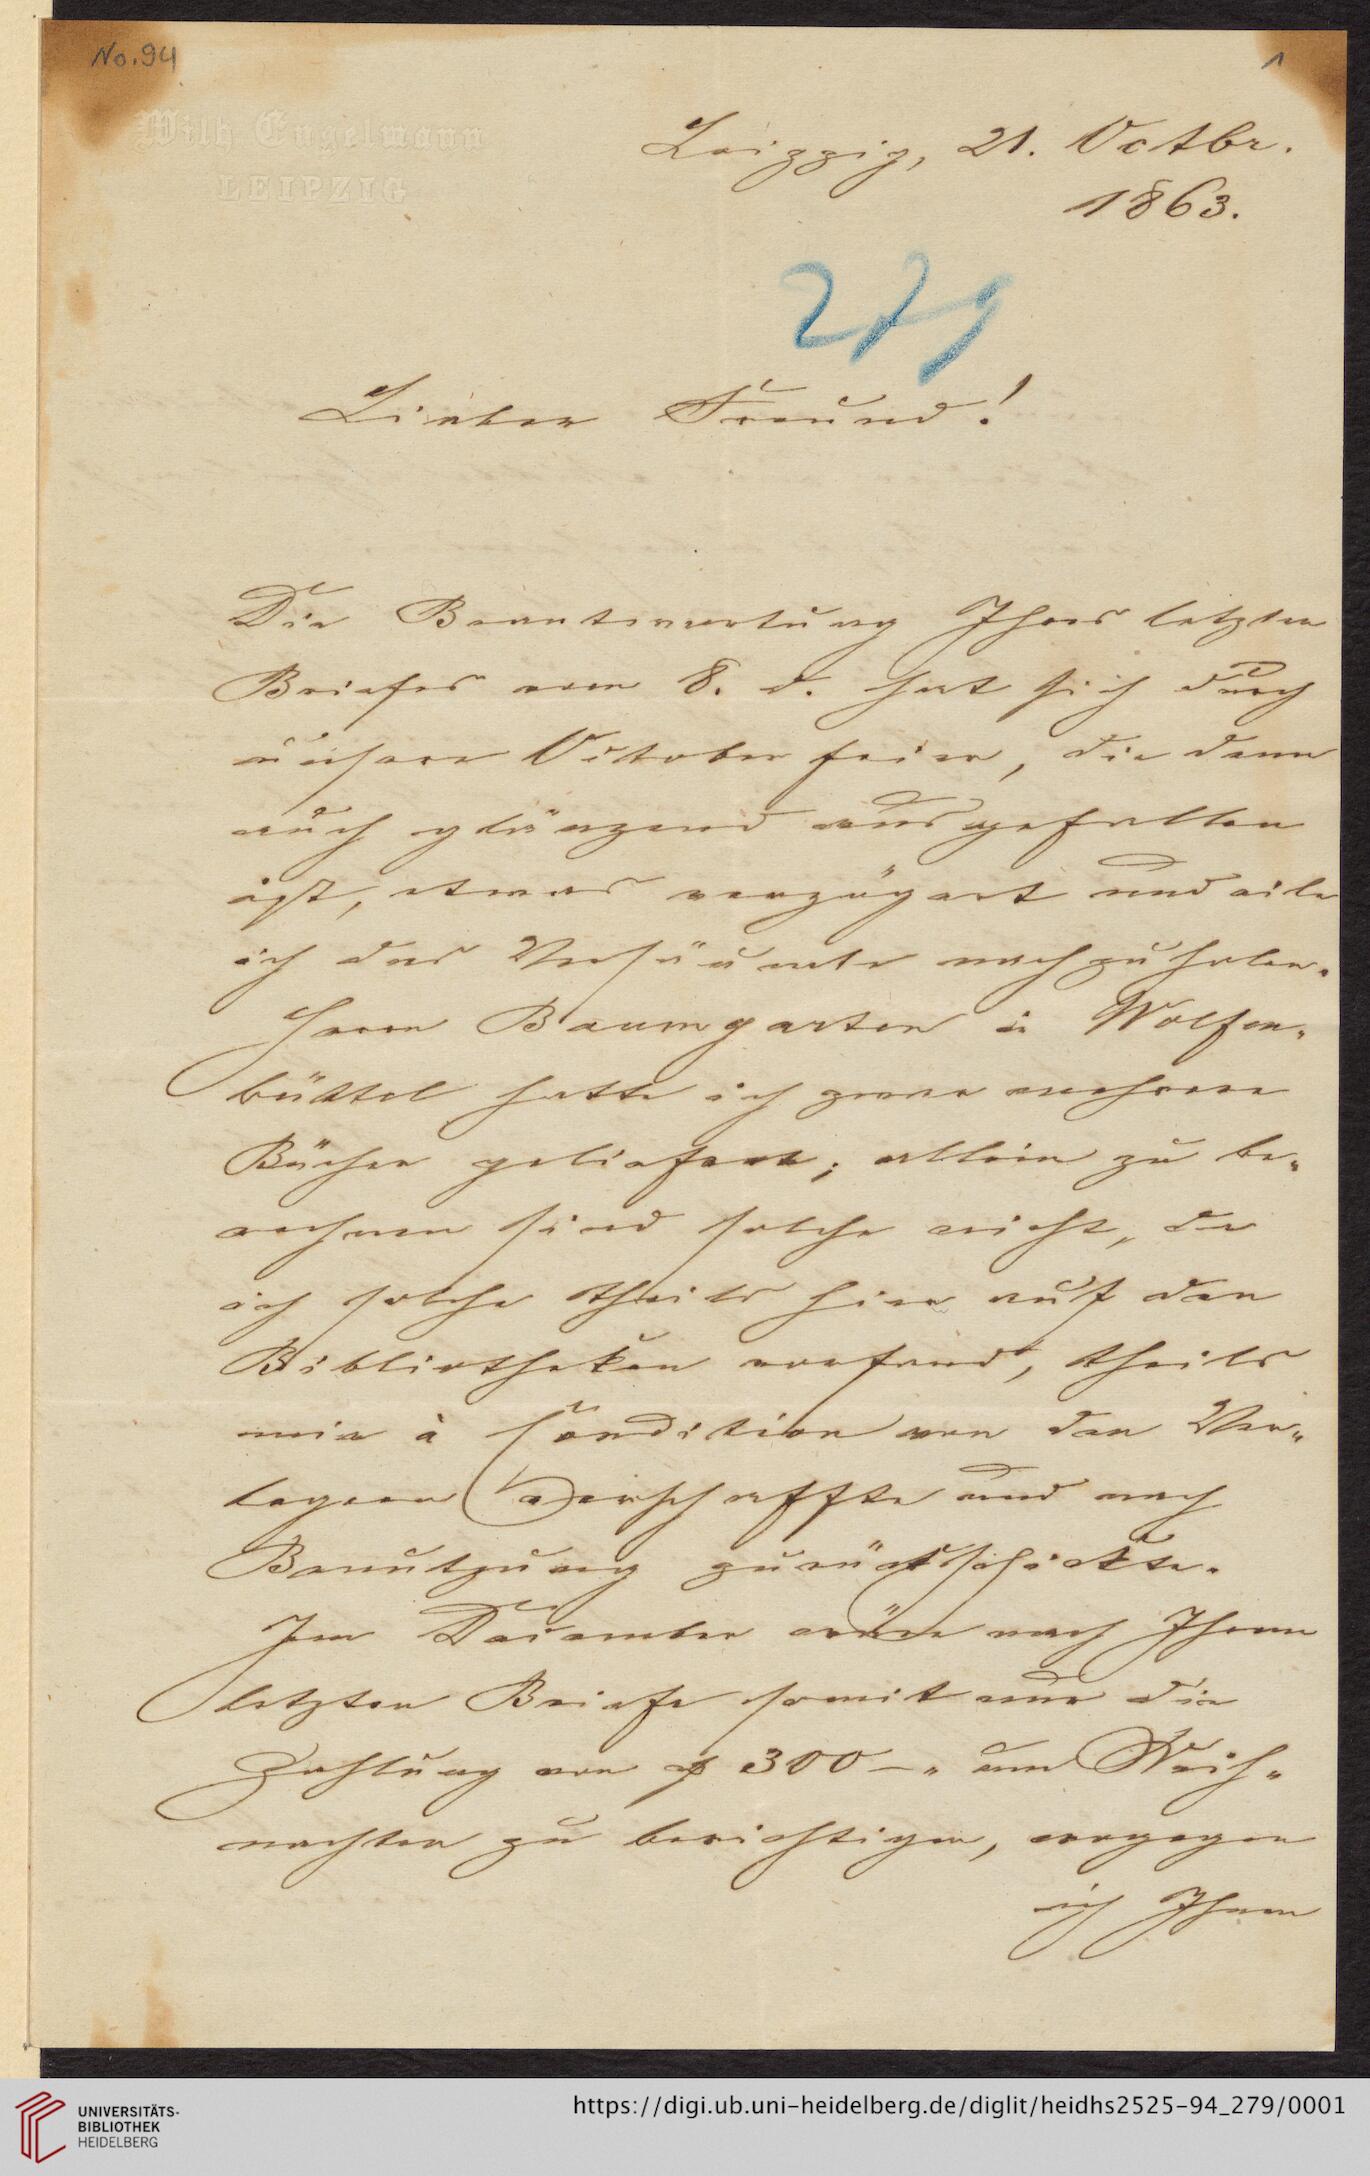 No. 94
1
Wilh Engelmann
LEIPZIG
Leipzig, 21. Octbr.
1863.
279
Lieber Freund!
Die Beantwortung Ihres letzten
Briefes vom 8. d. hat sich durch
unsere Octoberfeier, die denn
auch glänzend ausgefallen
ist, etwas verzögert und eile
ich das Versäumte nachzuholen.
Herrn Baumgarten in Wolfen-
büttel hatte ich zwar mehrere
Bücher geliefert; allein zu be-
rechnen sind solche nicht, da
ich solche theils hier auf den
Bibliotheken vorfand, theils
mir à Condition von den Ver-
legern verschaffte und nach
Benutzung zurückschickte.
Im December wäre nach Ihrem
letzten Briefe somit nur die
Zahlung von 300 –. um Weih-
nachten zu berichtigen, wogegen
ich Ihnen
UNIVERSITÄTS-
BIBLIOTHEK
HEIDELBERG
https://digi.ub.uni-heidelberg.de/diglit/heidhs2525-94_279/0001